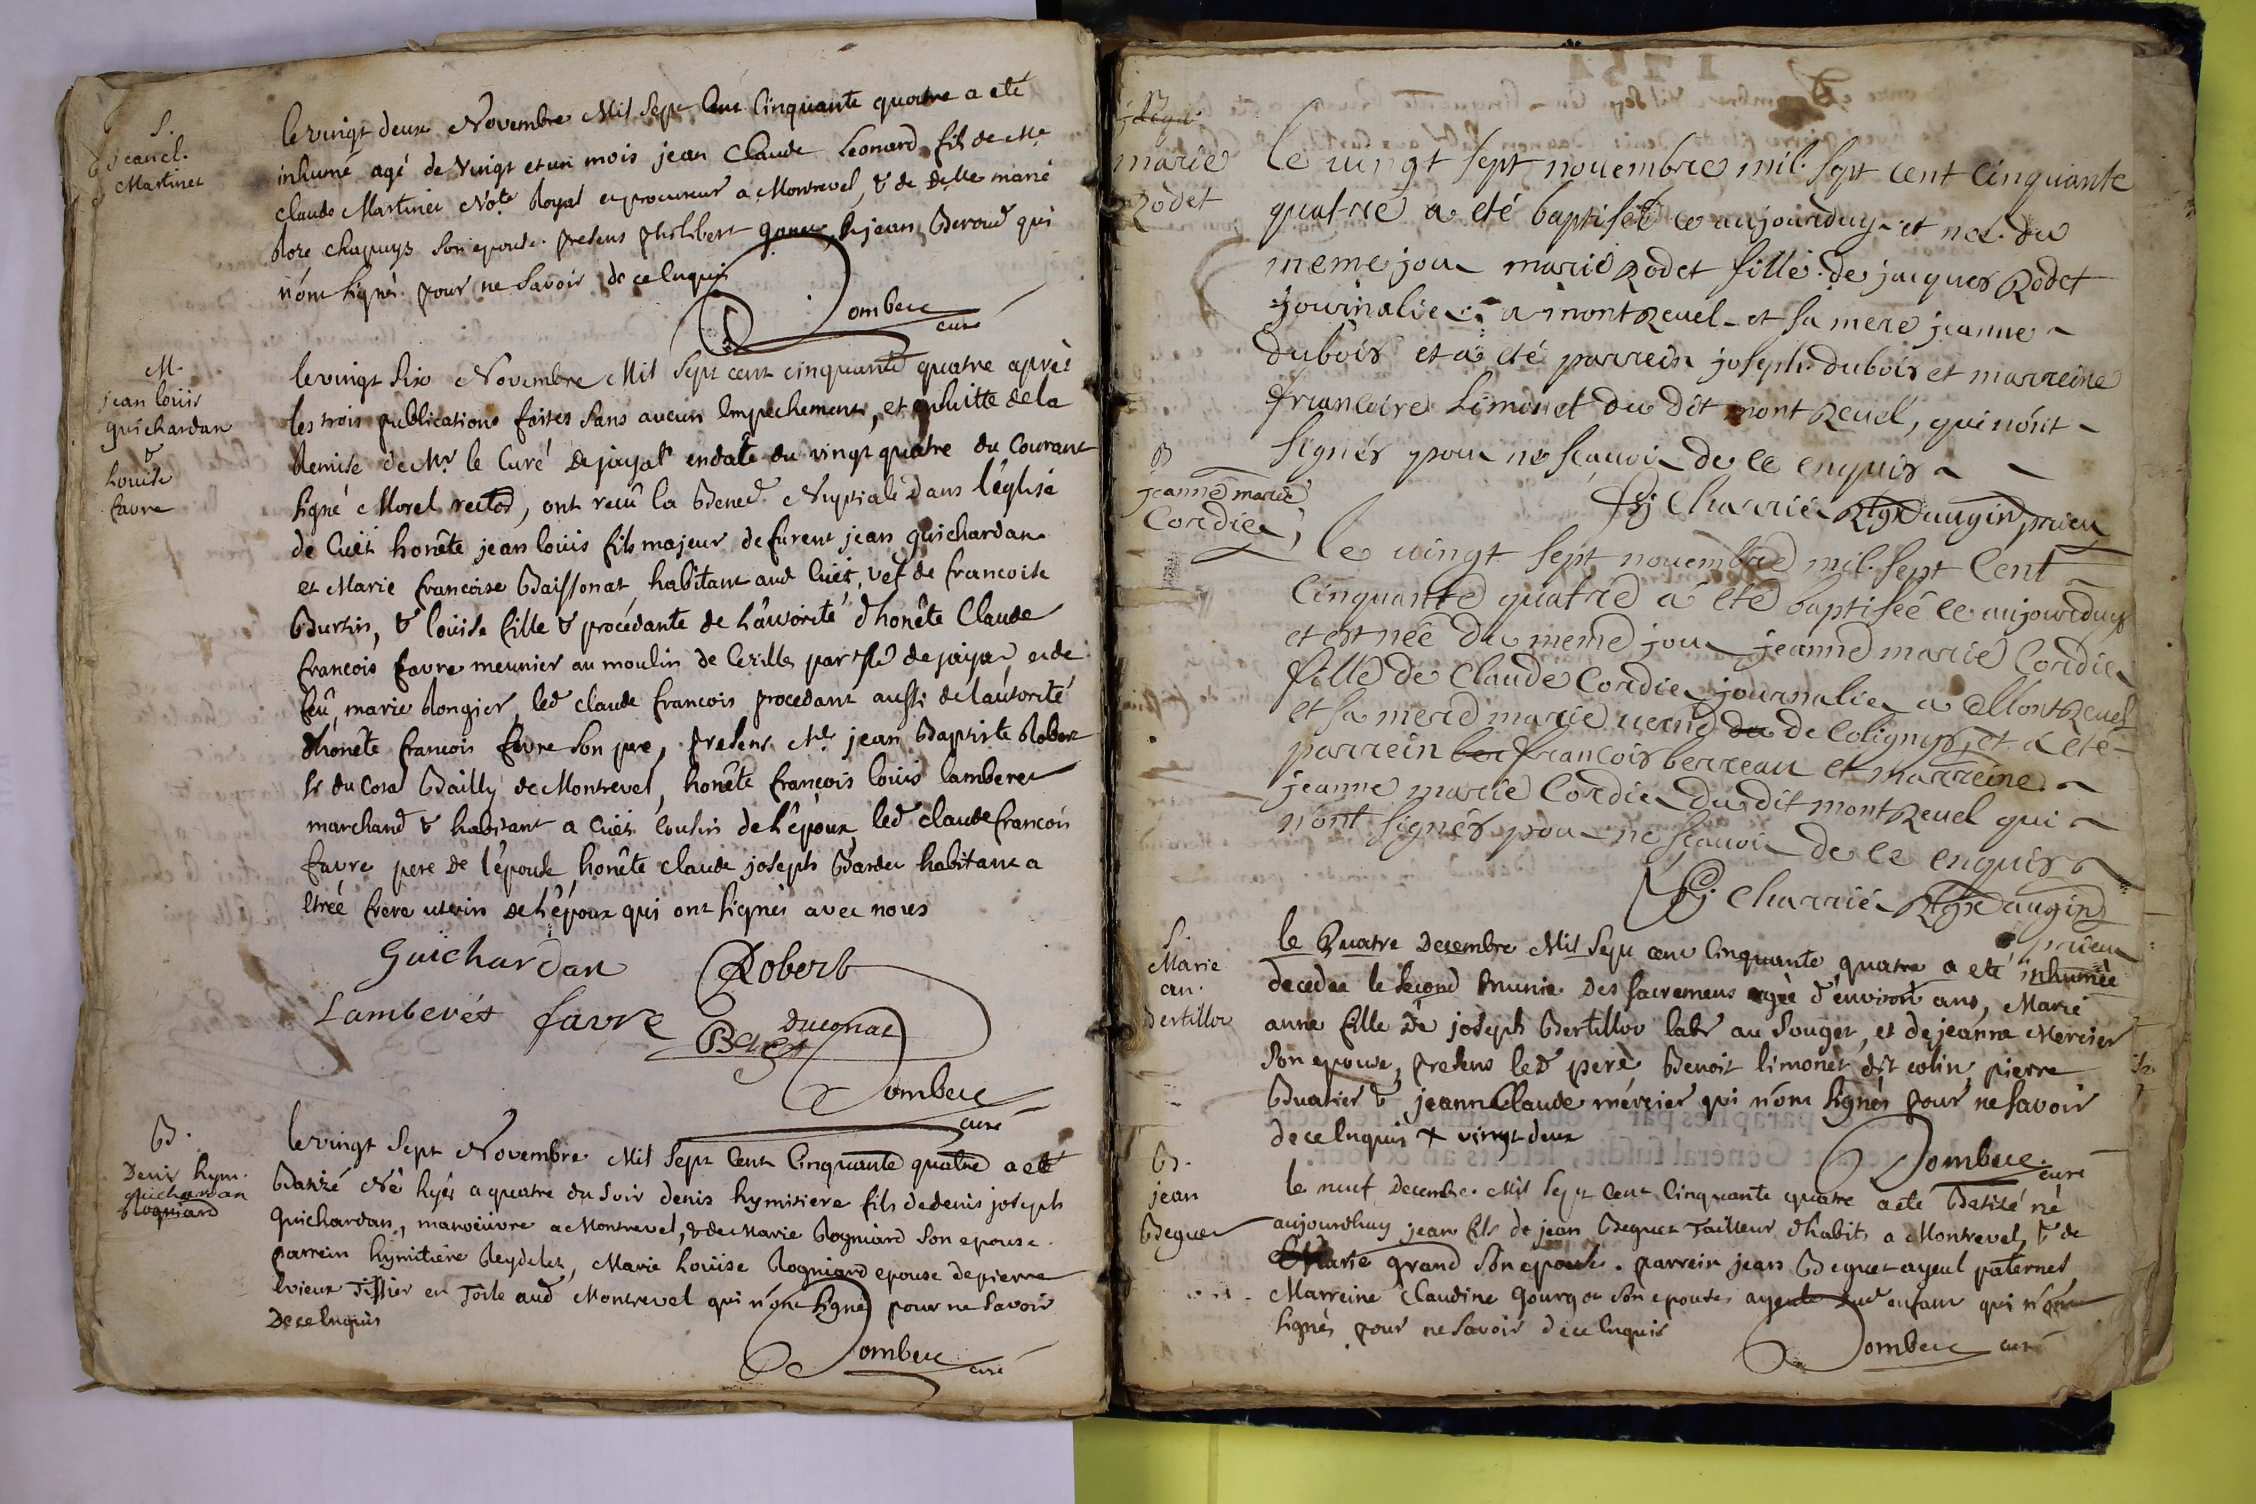 S.
jean cl.
Martinet
le vingt deux Novembre Mil Sept Cent Cinquante quatre a été
inhumé agé de vingt et un mois jean Claude Leonard fils de Me
Claude Martinet Nore Royal et procureur a Montrevel, & de Delle marie
Roze chapuys son epouse. presens philibert & jean Beroud qui
n'ont signés pour ne savoir de ce Enquis
Dombeuc
curé
M.
jean louis
guichardan
&
Louise
favre
le vingt Six Novembre Mil Sept cent cinquante quatre après
les trois publications faites sans aucun Empechement, et ensuitte de la
Remise de Mr le Curé De jayat en date du vingt quatre du Courant
signé Morel rector, ont reçû la Bened. Nuptiale Dans l'église
de Cuët honête jean louis fils majeur de furent jean guichardan
et Marie francoise Baissonat, habitant aud Cuët, vef de francoise
Burtin, & loüise fille & procédante de L'autorité d'honête Claude
francois favre meunier au moulin de Cezille parsse de jayat et de
feû marie Rongier, led claude francois procedant aussi de l'autorité
d'honête francois favre son pere, presens Me jean Baptiste Robert
Sr du Cora Bailly de Montrevel, honête françois louis lamberet
marchand & habitant a Cuët Cousin de l'époux, led claude francois
favre pere De l'épouse honête claude joseph Bardet habitant a
Etrée frere uterin de l'époux qui ont signés avec nous
Guichardan Robert
Lamberét favre
Ducoras
Dombeuc
curé
B.
Denis hym.
guichardan
Rogniard
le vingt Sept Novembre Mil Sept Cent Cinquante quatre a eté
Batizé Né hyér a quatre du soir denis hymitiere fils de denis joseph
guichardan, manoeuvre a Montrevel, & de Marie Rogniard son epouse.
parrein hymitiere Reydelet, Marie Louise Rogniard epouse de pierre
Evieux Tissier en Toile aud Montrevel qui n'ont signé pour ne savoir
De ce Enquis
Dombeuc
curé
B
marie
Rodet
Le vingt sept nouembre mil. sept cent Cinquante
quatre a eté baptisée ce aujourduy et née du
meme jour marie Rodet fille de jacques Rodet
journalier a montReuel et sa mere jeanne
dubois et a eté parrein joseph dubois et marreine
francoise Limonet du dit montReuel, qui n'ont
signés pour ne sçauoir de ce enquis
Charrié Daugin prieur
B
jeanne marie
Cordier
le vingt sept nouembre mil. sept Cent
Cinquante quatre a eté baptisée ce aujourduy
et est née du meme jour jeanne marie Cordier
fille de Claude Cordier journalier a MontReuel
et sa mere marie uerne de Coligny, et a eté
parrein francois berreau et marreine
jeanne marie Cordier du dit montReuel qui
n'ont signés pour ne sçauoir de ce enquis
Charrié Daugin
prieur
S.
Marie
an.
Bertillor
le Quatre Decembre Mil Sept cent Cinquante quatre a eté inhumée
decedée le second Munie Des sacremens agée d'environ ans, Marie
anne fille De joseph Bertillor labr au Souget, et de jeanne Mercier
son epouse, presens led pere Benoit limonet dit colin, pierre
Buatier & jeann Claude mercier qui n'ont signés pour ne savoir
de ce Enquis + vingt deux
Dombeuc
curé
B.
jean
Beguet
le neuf Decembre Mil Sept Cent Cinquante quatre a eté Batisé né
aujourdhuy jean fils de jean Beguet Tailleur d'habits a Montrevel, & de
Marie grand son epouse. parrein jean Beguet ayeul paternel
Marreine Claudine gourgon son epouse ayeule dud enfant qui n'ont
signés pour ne savoir de ce Enquis
Dombeuc curé